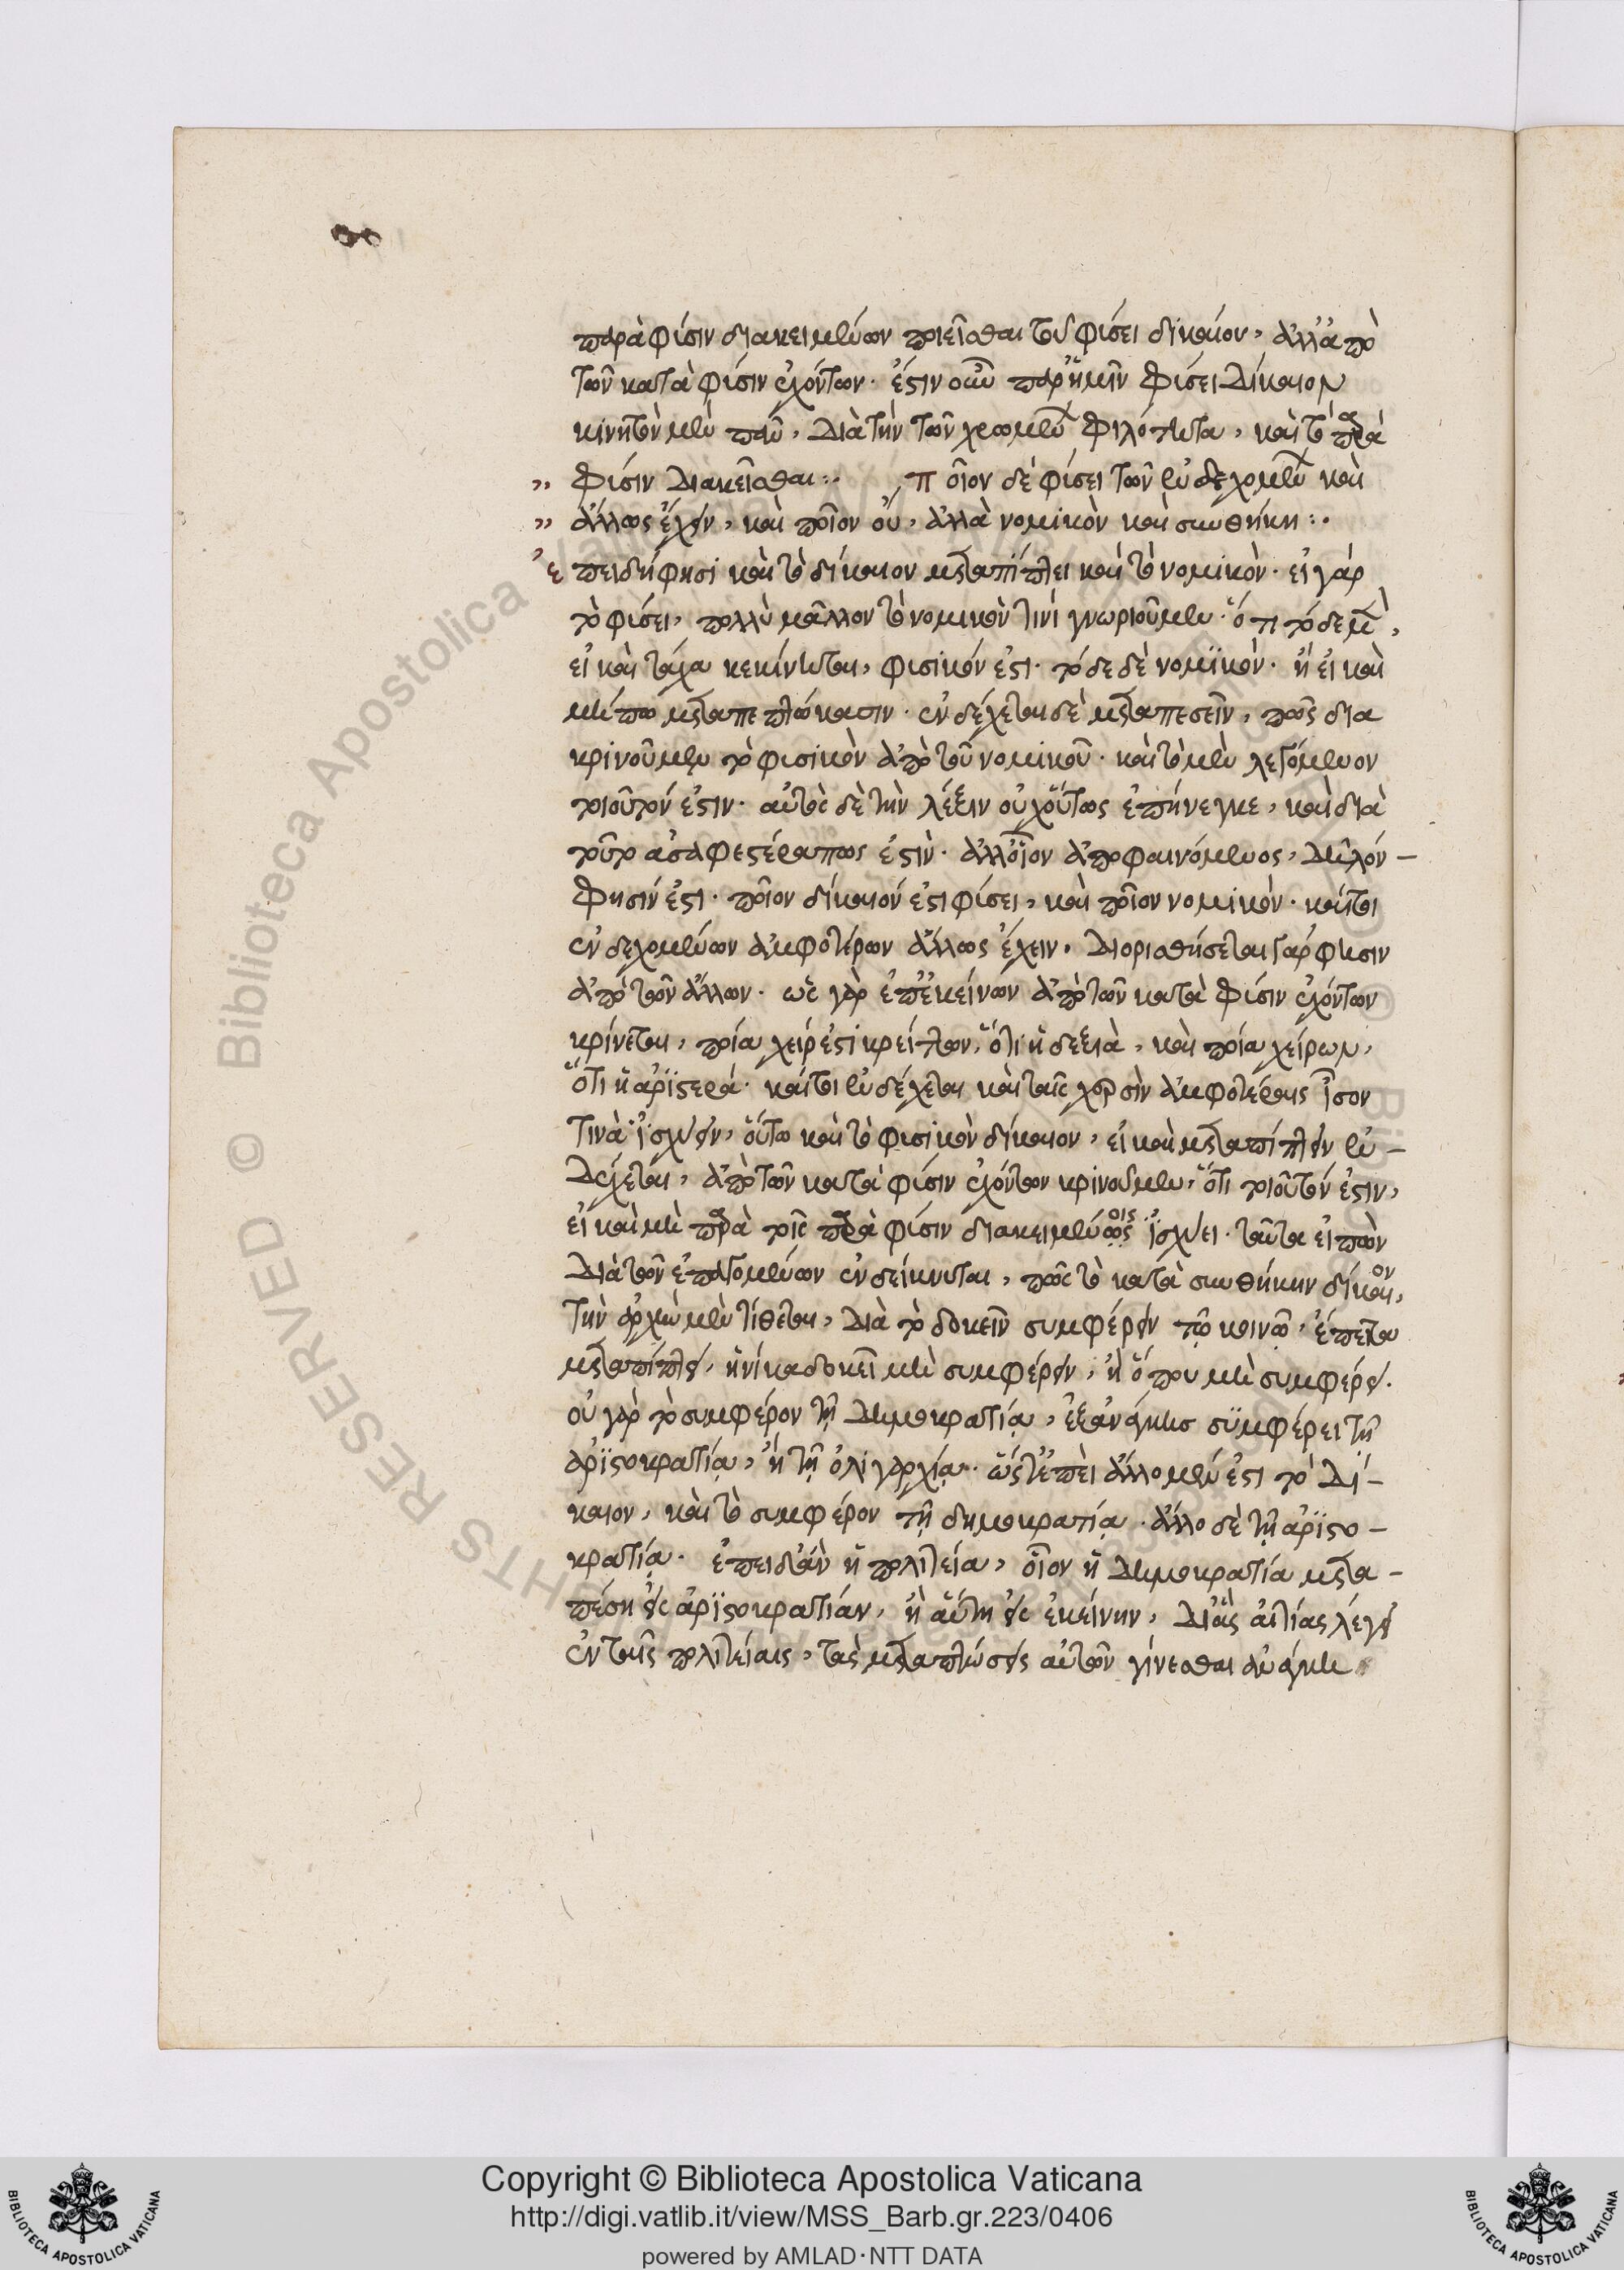 παρὰ φύσιν διακειμένων ποιεῖσθαι τοῦ φύσει δικαίου, ἀλλ' ἀπὸ
τῶν κατὰ φύσιν ἐχόντων. ἔστιν οὖν παρ' ἡμῖν φύσει δίκαιον
κινητὸν μὲν πᾶν, διὰ τὴν τῶν χρωμένων φιλότητα, καὶ τὸ παρὰ
„ φύσιν διακεῖσθαι :. ποῖον δὲ φύσει τῶν ἐνδεχομένων καὶ
„ ἄλλως ἔχειν, καὶ ποῖον οὔ, ἀλλὰ νομικὸν καὶ συνθήκῃ :.
ἐπειδή φησι καὶ τὸ δίκαιον μεταπίπτει καὶ τὸ νομικὸν. εἰ γάρ
τὸ φύσει, πολλῷ μᾶλλον τὸ νομικὸν τίνι γνωριοῦμεν. ὅτι τόδε μὲν,
εἰ καὶ τάχα κεκίνηται, φυσικόν ἐστι. τόδε δὲ νομϊκὸν. ἢ εἰ καὶ
μήπω μεταπεπτώκασιν. ἐνδέχεται δὲ μεταπεσεῖν, πῶς δια
κρινοῦμεν τὸ φυσικὸν ἀπὸ τοῦ νομικοῦ. καὶ τὸ μὲν λεγόμενον
τοιοῦτόν ἐστιν. αὐτὸς δὲ τὴν λέξιν οὐχ οὕτως ἐπήνεγκε, καὶ διὰ
τοῦτο ἀσαφέστερά πως ἐστὶν. ἀλλ' οἷον ἀποφαινόμενος, δῆλόν –
φησίν ἐστι. ποῖον δίκαιόν ἐστι φύσει, καὶ ποῖον νομικὸν. καίτοι
ἐνδεχομένων ἀμφοτέρων ἄλλως ἔχειν. διορισθήσεται γάρ φησιν
ἀπὸ τῶν ἄλλων. ὡς γὰρ ἐπ' ἐκείνων ἀπὸ τῶν κατὰ φύσιν ἐχόντων
κρίνεται, ποία χείρ ἐστι κρείττων, ὅτι ἡ δεξιὰ, καὶ ποία χείρων,
ὅτι ἡ ἀρϊστερά. καίτοι ἐνδέχεται καὶ ταῖς χερσὶν ἀμφοτέραις ἶσον
τινὰ ἰσχύειν, οὕτω καὶ τὸ φυσικὸν δίκαιον, εἰ καὶ μεταπίπτειν ἐν –
δέχεται, ἀπὸ τῶν κατὰ φύσιν ἐχόντων κρινοῦμεν, ὅτι τοιοῦτόν ἐστιν,
εἰ καὶ μὴ παρὰ τοῖς παρὰ φύσιν διακειμένοις ἰσχύει. ταῦτα εἰπὼν
διὰ τῶν ἐπαγομένων ἐνδείκνυται, πῶς τὸ κατὰ συνθήκην δίκαιον,
τὴν ἀρχὴν μὲν τίθεται, διὰ τὸ δοκεῖν συμφέρειν τῷ κοινῷ, ἔπειτα
μεταπίπτει, ἡνίκα δοκεῖ μὴ συμφέρειν, ἢ ὅπου μὴ συμφέρει.
οὐ γὰρ τὸ συμφέρον τῇ δημοκρατίᾳ, ἐξανάγκησ συμφέρει τῇ
ἀρϊστοκρατίᾳ, ἢ τῇ ὀλιγαρχίᾳ. ὥστ' ἐπεὶ ἄλλο μέν ἐστι τὸ δί –
καιον, καὶ τὸ συμφέρον τῇ δημοκρατίᾳ. ἄλλο δὲ τῇ ἀρϊστο –
κρατίᾳ. ἐπειδὰν ἡ πολιτεία, οἷον ἡ δημοκρατία μετα –
πέσῃ εἰς ἀρϊστοκρατίαν, ἢ αὕτη εἰς ἐκείνην, δι' ἃς αἰτίας λέγει
ἐν ταῖς πολιτείαις, τὰς μεταπτώσεις αὐτῶν γίνεσθαι ἀνάγκη
Copyright © Biblioteca Apostolica Vaticana
http://digi.vatlib.it/view/MSS_Barb.gr.223/0406
powered by AMLAD·NTT DATA
BIBLIOTECA APOSTOLICA VATICANA
BIBLIOTECA APOSTOLICA VATICANA